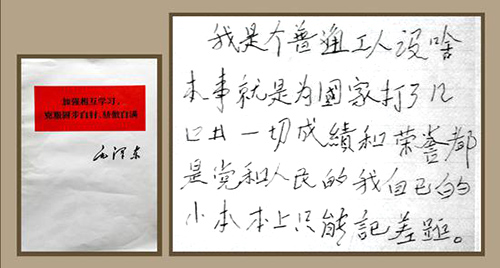 加强相互学习,
克服固步自封、骄傲自满
毛泽东
我是个普通工人没啥
本事就是为國家打了几
口井一切成績和荣誉都
是党和人民的我自己的
小本本上只能記差距。